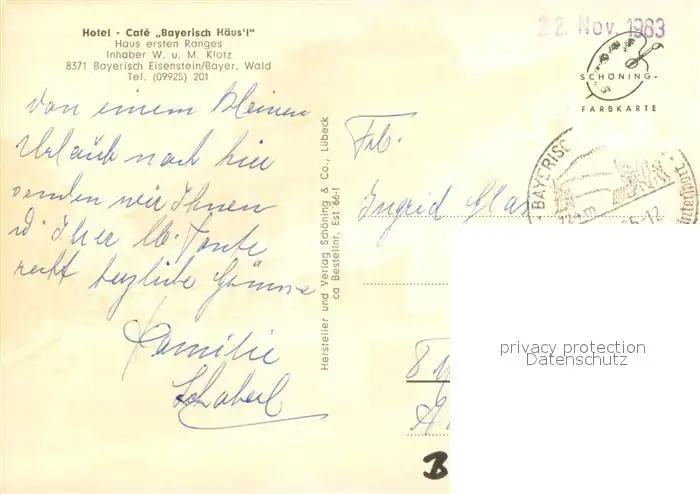 Hotel - Café „Bayerisch Häus'l"
Haus ersten Ranges
Inhaber W. u. M. Klotz
8371 Bayerisch Eisenstein/Bayer. Wald
Tel. (09925) 201
Von einem kleinen
Urlaub nach hier
senden wir Ihnen
u. Ihrer lb. Tante
recht herzliche Grüsse
Familie
Hersteller und Verlag Schöning & Co., Lübeck
ca Bestellnr. Est 66-1
22. Nov. 1983
SCHÖNING-
FARBKARTE
BAYERISC
724 m
-12
Frl.
Ingrid
privacy protection
Datenschutz
B